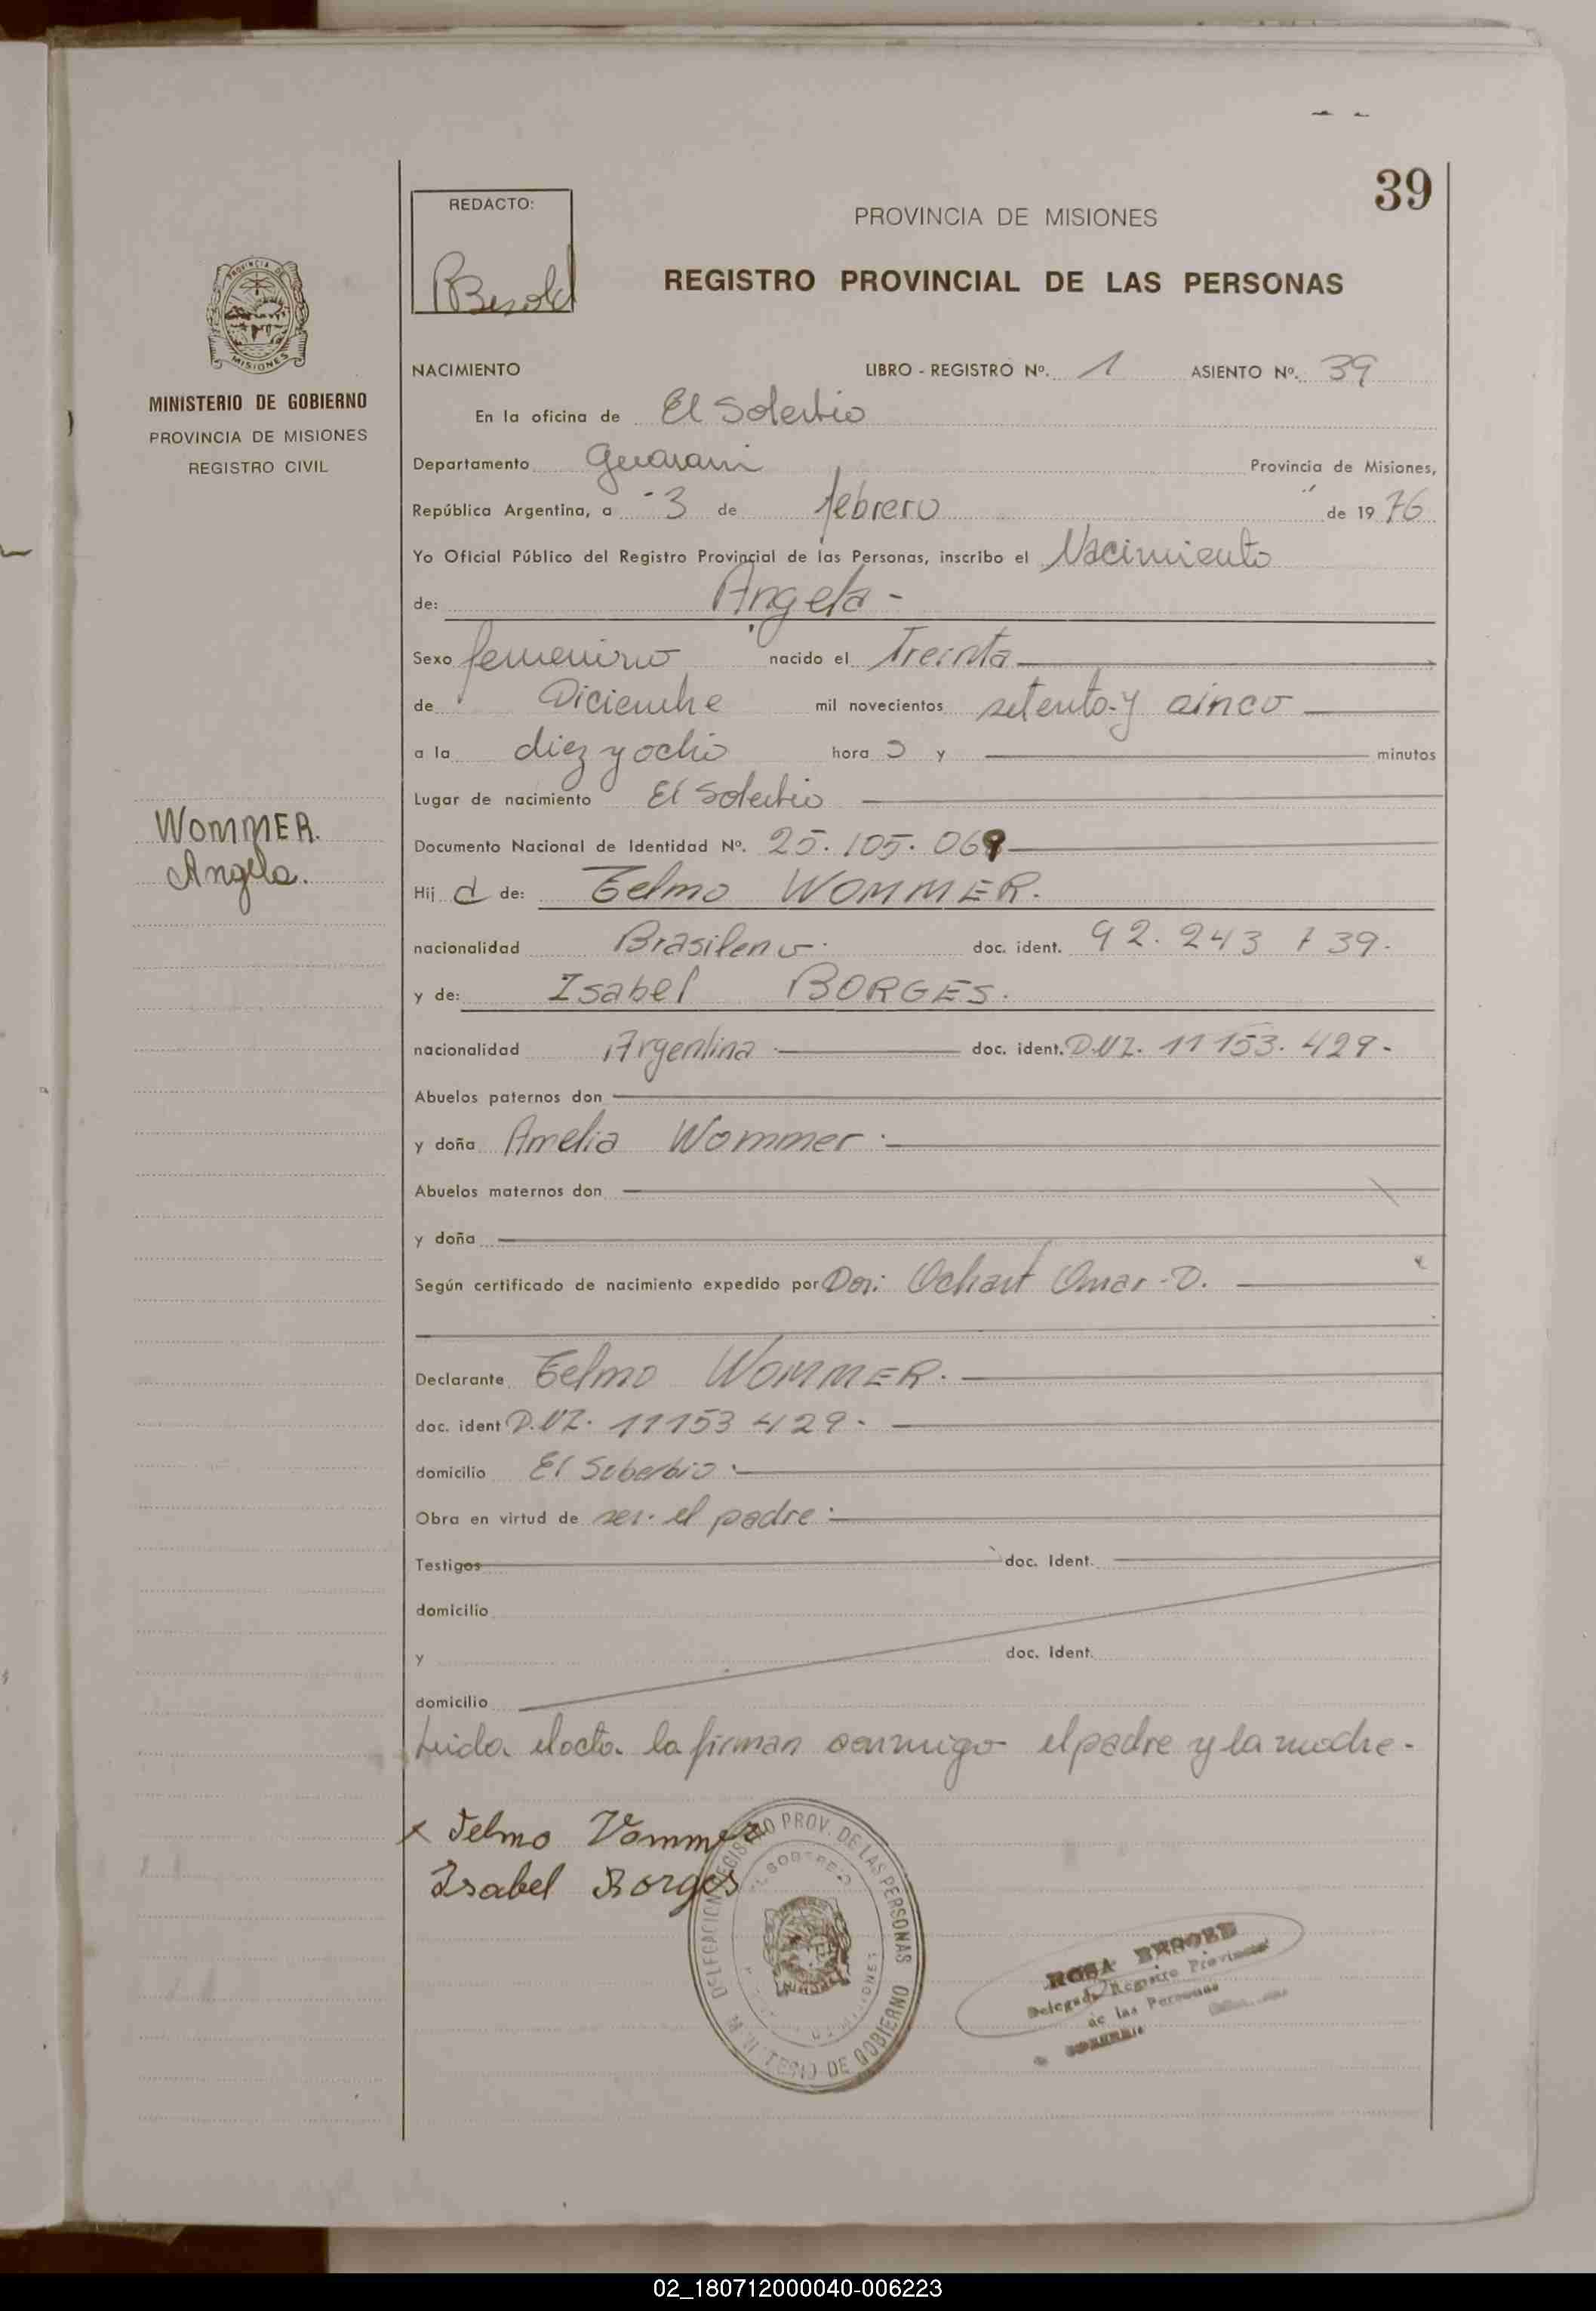 39
REDACTO:
PROVINCIA DE MISIONES
REGISTRO PROVINCIAL DE LAS PERSONAS
MINISTERIO DE GOBIERNO
PROVINCIA DE MISIONES
REGISTRO CIVIL
NACIMIENTO LIBRO - REGISTRO Nº. 1 ASIENTO Nº. 39
En la oficina de El Soberbio
Departamento Guarani Provincia de Misiones,
República Argentina, a 3 de febrero de 19 76
Yo Oficial Público del Registro Provincial de las Personas, inscribo el Nacimiento
de: Angela -
Sexo femenino nacido el Treinta
de Diciembre mil novecientos setenta y cinco
a la diez y ocho hora s y minutos
Lugar de nacimiento El Soberbio
WOMMER.
Angela.
Documento Nacional de Identidad Nº. 25.105.069
Hij a de: Telmo WOMMER.
nacionalidad Brasileno. doc. ident. 92.243 739.
y de: Isabel BORGES.
nacionalidad Argentina doc. ident. D.N.I. 11 153. 429-
Abuelos paternos don
y doña Amelia Wommer
Abuelos maternos don
y doña
Según certificado de nacimiento expedido por Don: Ochart Omar - D.
Declarante Telmo WOMMER.
doc. ident D.N.I. 11153 429-
domicilio El Soberbio
Obra en virtud de ser el padre
Testigos doc. Ident.
domicilio
y doc. Ident.
domicilio
Leida el acta la firman conmigo el padre y la madre.
x Telmo Vommer
Isabel Borges
DELEGACION REGISTRO PROV. DE LAS PERSONAS
EL SOBERBIO
MINISTERIO DE GOBIERNO
ROSA BESOLD
Delegada Registro Provincial
de las Personas
02_180712000040-006223